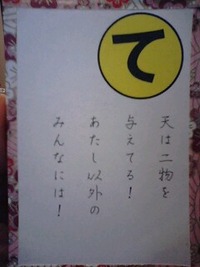 て
天は二物を
与えてる!
あたし以外の
みんなには!